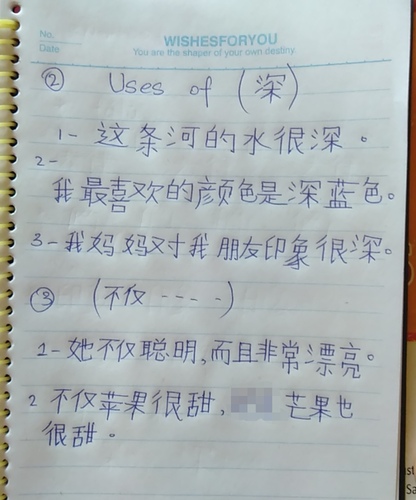 No.
Date
WISHESFORYOU
You are the shaper of your own destiny
② Uses of (深)
1- 这条河的水很深。
2-
我最喜欢的颜色是深蓝色。
3- 我妈妈对我朋友印象很深。
③ (不仅 ----)
1- 她不仅聪明,而且非常漂亮。
2 不仅苹果很甜, 芒果也
很甜。